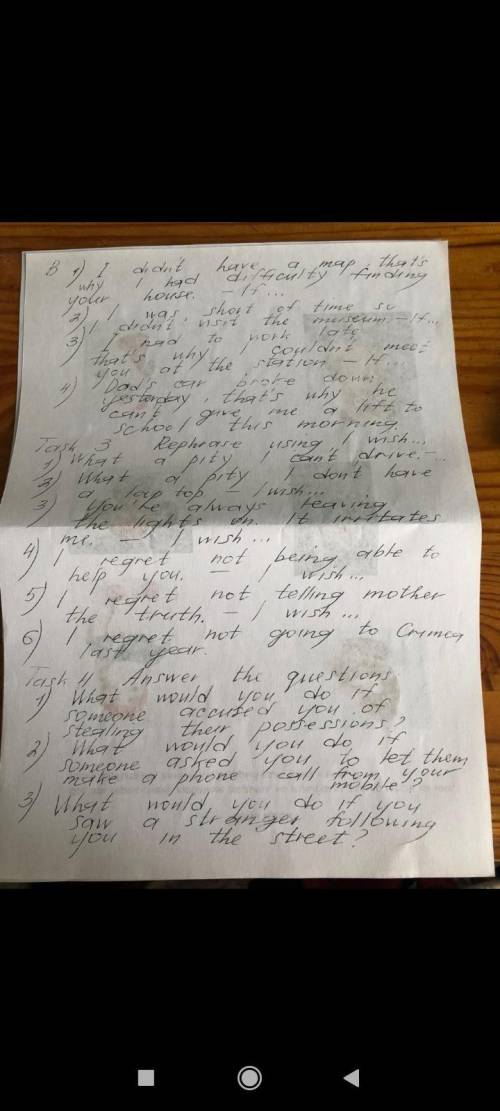 B 1) I didn't have a map, that's
why I had difficulty finding
your house. – If...
2) I was short of time so
I didn't visit the museum. – If...
3) I had to work late
that's why I couldn't meet
you at the station – If...
4) Dad's car broke down
yesterday, that's why he
can't give me a lift to
school this morning.
Task 3 Rephrase using I wish...
1) What a pity I can't drive. –...
2) What a pity I don't have
a lap top – I wish...
3) You're always leaving
the lights on. It irritates
me. – I wish...
4) I regret not being able to
help you. – I wish...
5) I regret not telling mother
the truth. – I wish...
6) I regret not going to Crimea
last year.
Task 4 Answer the questions
1) What would you do if
someone accused you of
stealing their possessions?
2) What would you do if
someone asked you to let them
make a phone call from your
mobile?
3) What would you do if you
saw a stranger following
you in the street?